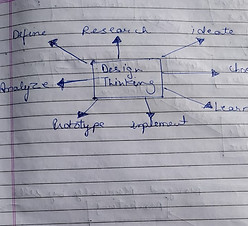 Define
Research
ideate
Analyze
Design
Thinking
Learn
Prototype
implement